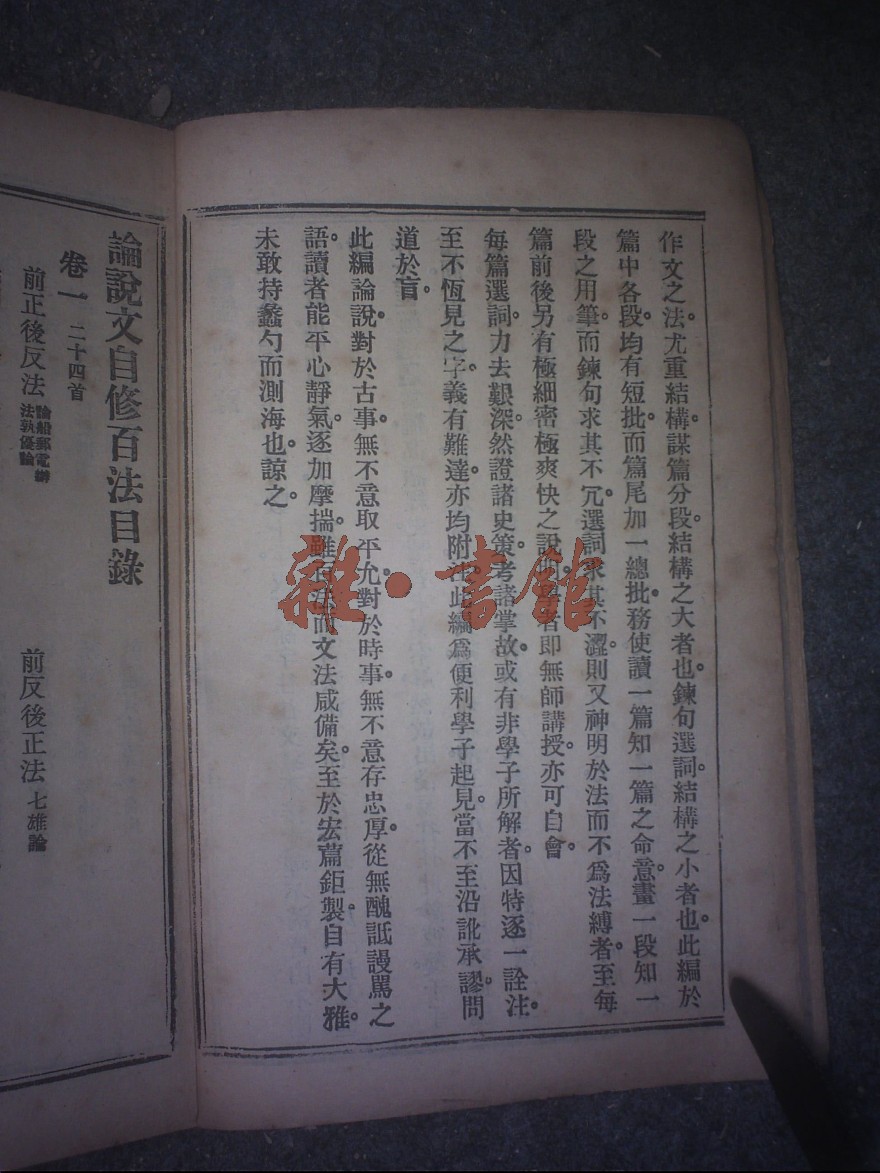 作文之法。尤重結構。謀篇分段。結構之大者也。鍊句選詞。結構之小者也。此編於
篇中各段。均有短批。而篇尾加一總批。務使讀一篇知一篇之命意。畫一段知一
段之用筆。而鍊句求其不冗。選詞求其不澀。則又神明於法而不爲法縛者。至每
篇前後。另有極細密極爽快之說明。學者即無師講授。亦可自會。
每篇選詞。力去艱深。然證諸史策。考諸掌故。或有非學子所解者。因特逐一詮注。
至不恆見之字。義有難達。亦均附注。此編爲便利學子起見。當不至沿訛承謬。問
道於盲。
此編論說。對於古事。無不意取平允。對於時事。無不意存忠厚。從無醜詆謾罵之
語。讀者能平心靜氣。逐加摩揣。雖百法而文法咸備矣。至於宏篇鉅製。自有大雅。
未敢持蠡勺而測海也。諒之。
論說文自修百法目錄
卷一 二十四首
前正後反法 論船郵電辦法孰優論
前反後正法 七雄論
雜·書館